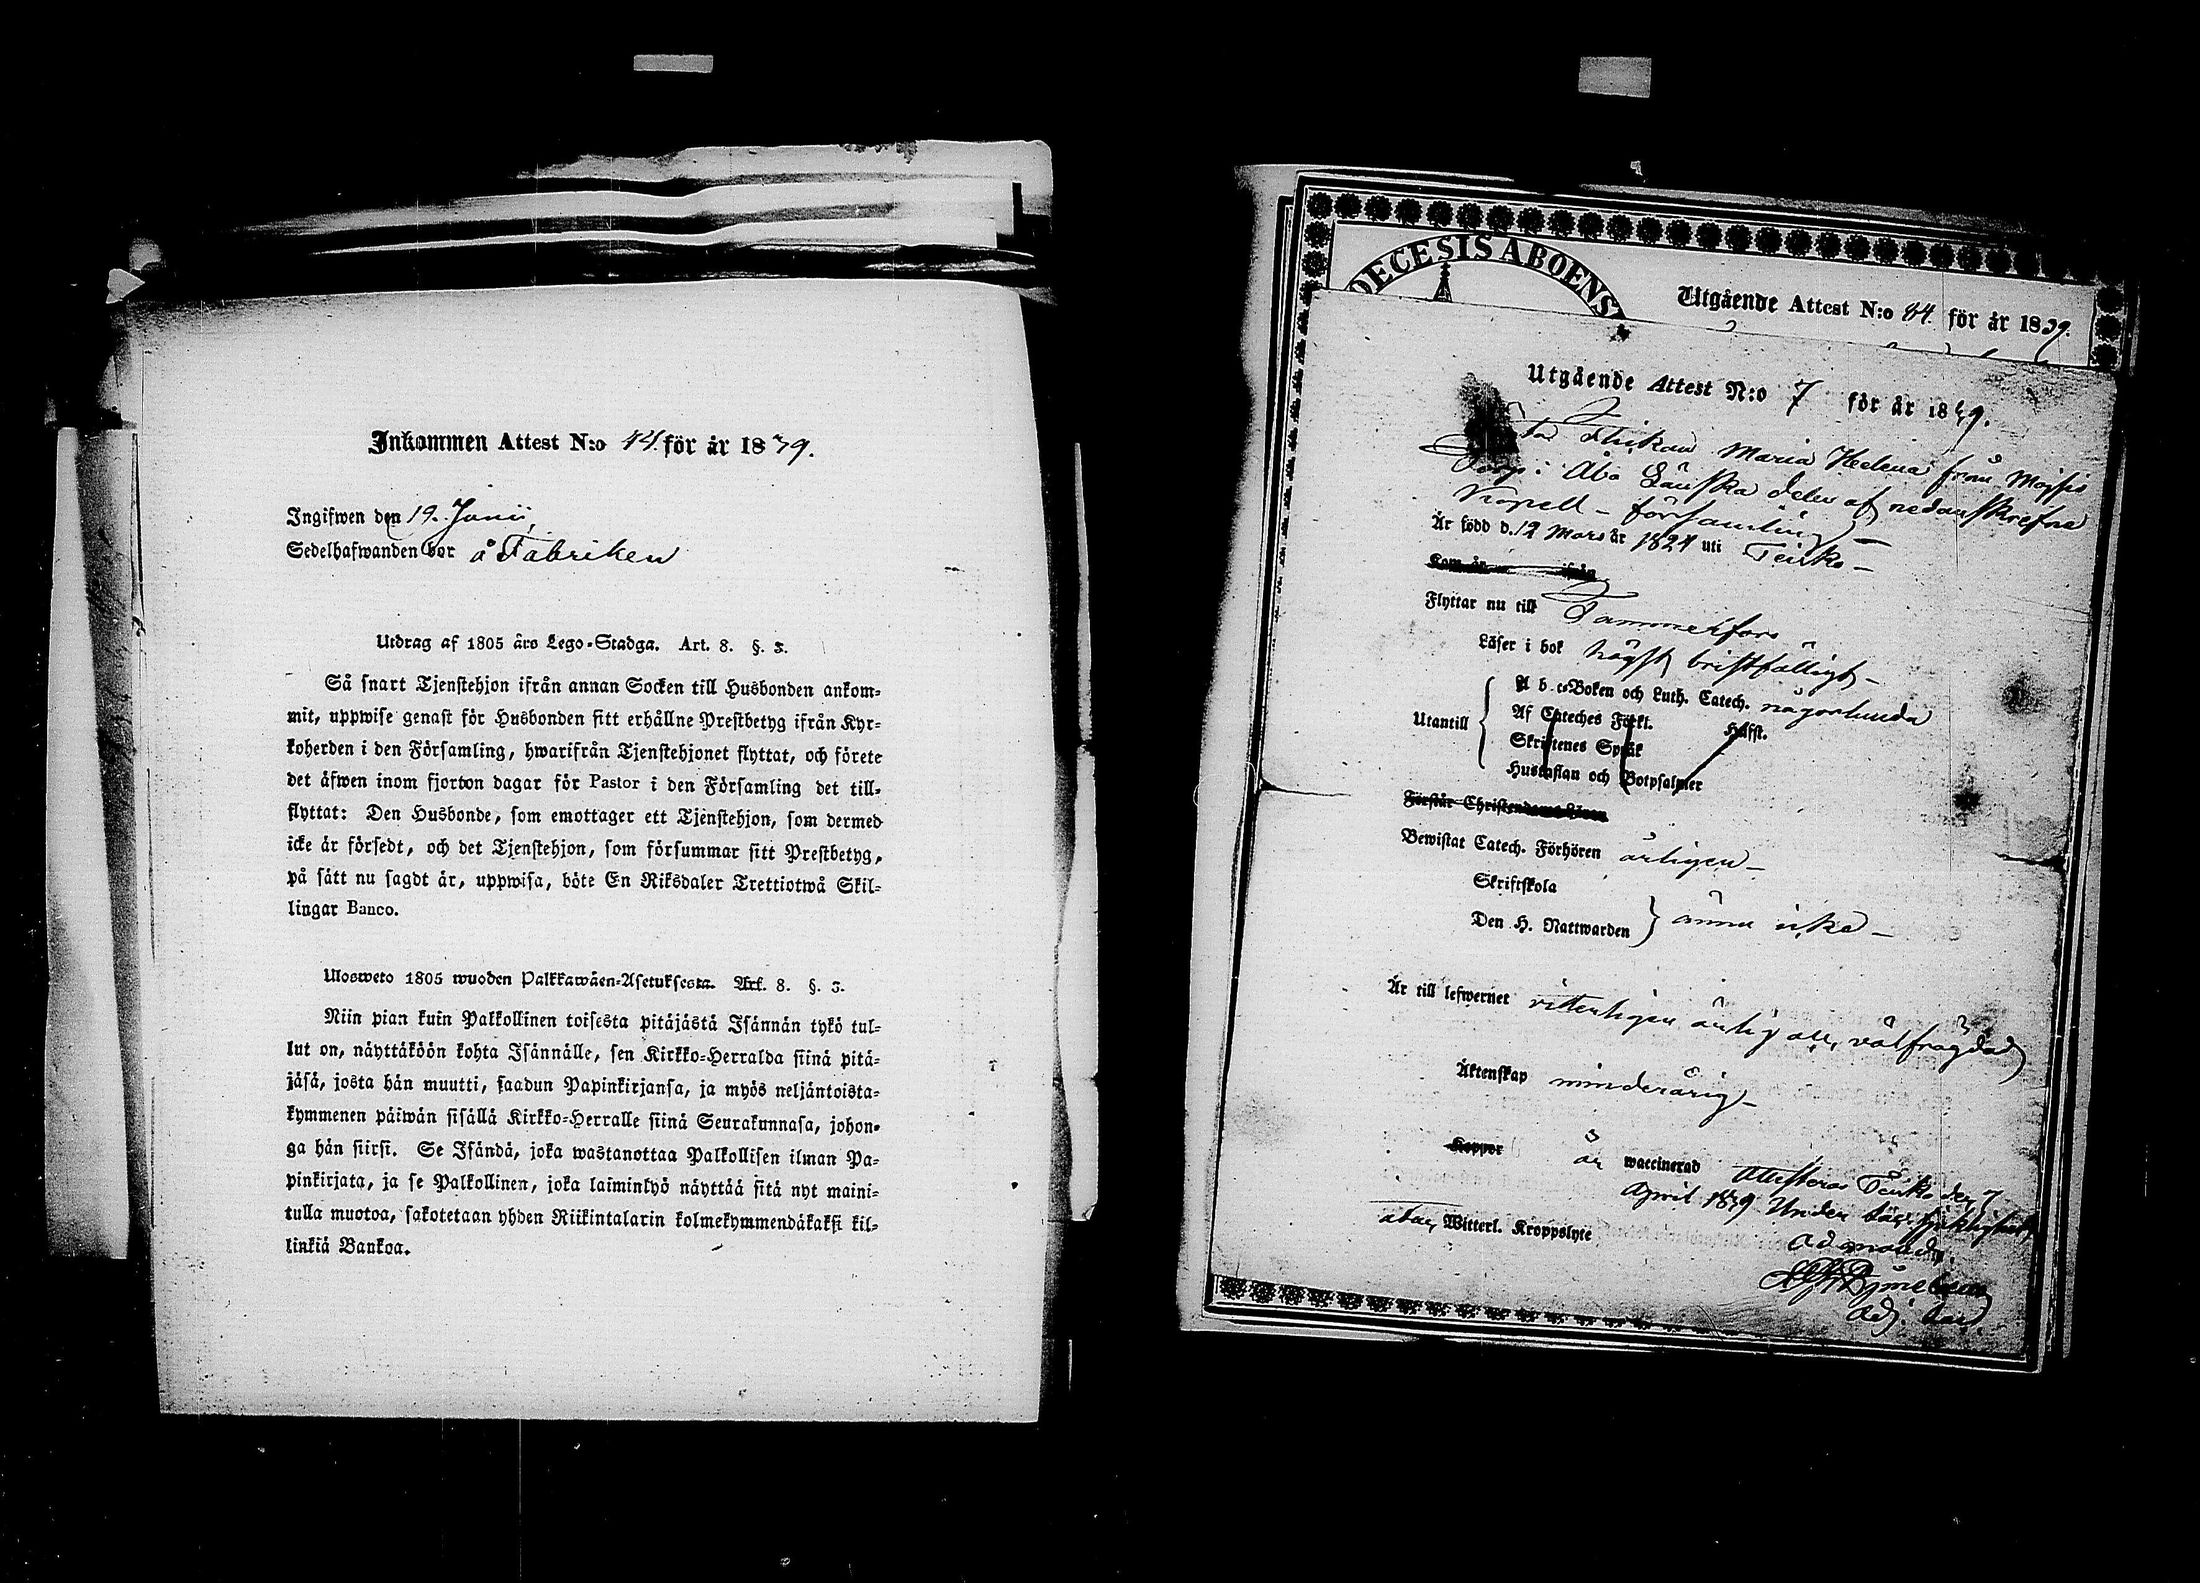 Inkommen Attest N:o 44. för år 1839.
Ingifwen den 19. Junii,
Sedelhafwanden bor å Fabriken
Utdrag af 1805 års Lego-Stadga. Art. 8. §. 3.
Så snart Tjenstehjon ifrån annan Socken till Husbonden ankom-
mit, uppwise genast för Husbonden sitt erhållne Prestbetyg ifrån Kyr-
koherden i den Församling, hwarifrån Tjenstehjonet flyttat, och förete
det äfwen inom fjorton dagar för Pastor i den Församling det till-
flyttat: Den Husbonde, som emottager ett Tjenstehjon, som dermed
icke är försedt, och det Tjenstehjon, som försummar sitt Prestbetyg,
på sätt nu sagdt är, uppwisa, böte En Riksdaler Trettiotwå Skil-
lingar Banco.
Ulosweto 1805 wuoden Palkkawäen-Asetuksesta. Art. 8. §. 3.
Niin pian kuin Palkollinen toisesta pitäjästä Isännän tykö tul-
lut on, näyttäköön kohta Isännälle, sen Kirkko-Herralda siinä pitä-
jäsä, josta hän muutti, saadun Papinkirjansa, ja myös neljäntoista-
kymmenen päiwän sisällä Kirkko-Herralle siinä Seurakunnasa, johon-
ga hän siirsi. Se Isändä, joka wastanottaa Palkollisen ilman Pa-
pinkirjata, ja se Palkollinen, joka laiminlyö näyttää sitä nyt maini-
tulla muotoa, sakotetaan yhden Riikintalarin kolmekymmendäkaksi kil-
linkiä Bankoa.
DECESIS ABOENS
Utgående Attest N:o 84. för år 1839.
Utgående Attest N:o 7 för år 1839.
Flickan Maria Helena från
i Åbo Länska delen af nedanskrefne
Kapell-församling
Är född d. 12 Mars år 1824 uti Teisko –
Kom år ifrån
Flyttar nu till Tammerfors
Läser i bok högst bristfälligt –
A b c-Boken och Luth. Catech. någorlunda
Utantill Af Cateches Förkl. Hälft.
Skriftenes Språk
Hustaflan och Botpsalmer
Förstår Christendoms Läran
Bewistat Catech. Förhören årligen –
Skriftskola
Den H. Nattwarden ännu icke –
Är till lefwernet witterligen ärlig och wälfrägdad
Äktenskap minderårig –
Koppor är waccinerad Attesteras Teisko den 7
April 1839 Under
utan Witterl. Kroppslyte
adj.